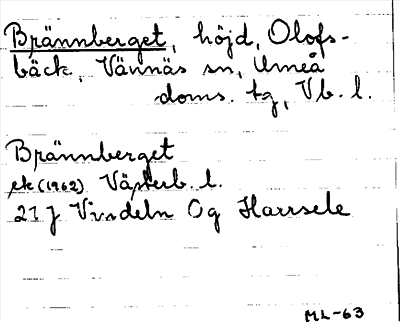 Brännberget, höjd, Olofs-
bäck, Vännäs sn, Umeå
doms. tg, Vb. l.
Brännberget
ek (1962) Västerb. l.
21 J Vindeln Og Harrsele
ML-63